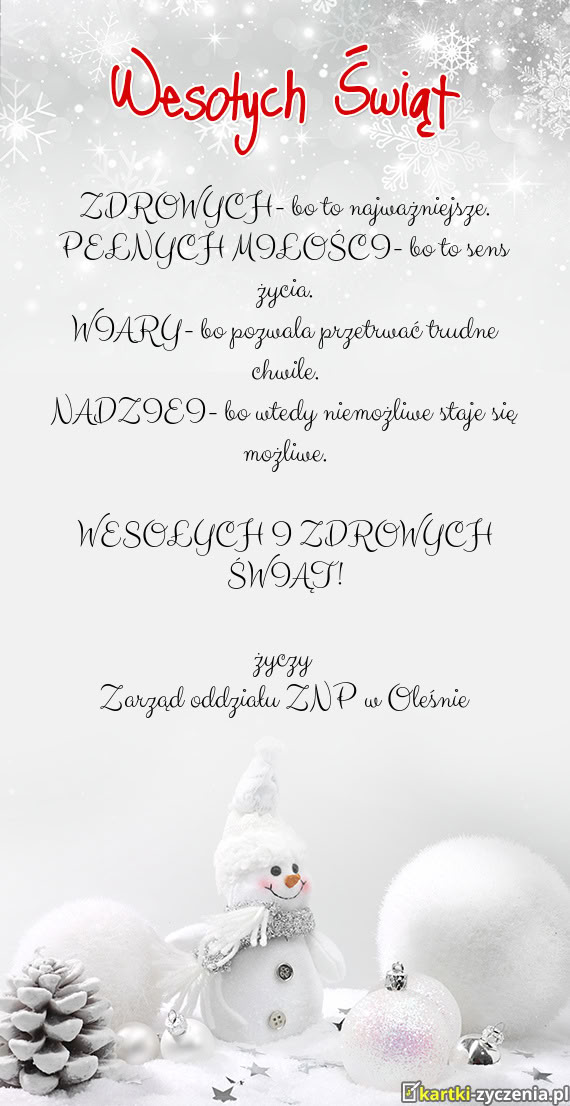 Wesołych Świąt
ZDROWYCH- bo to najważniejsze.
PEŁNYCH MIŁOŚCI- bo to sens
życia.
WIARY- bo pozwala przetrwać trudne
chwile.
NADZIEI- bo wtedy niemożliwe staje się
możliwe.
WESOŁYCH I ZDROWYCH
ŚWIĄT!
życzy
Zarząd oddziału ZNP w Oleśnie
kartki-zyczenia.pl